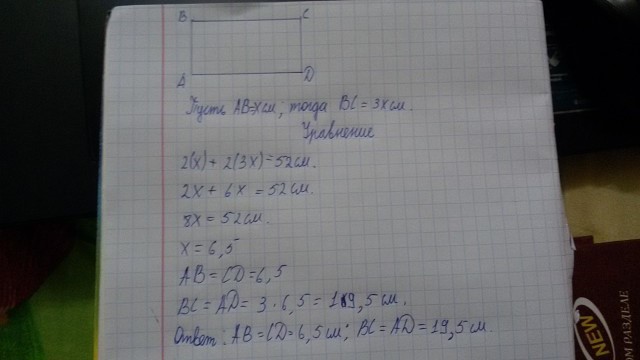 B C
A D
Пусть AB=x см, тогда BC = 3x см.
Уравнение
2(x) + 2(3x) = 52 см.
2x + 6x = 52 см.
8x = 52 см.
x = 6,5
AB = CD = 6,5
BC = AD = 3 · 6,5 = 19,5 см.
Ответ: AB = CD = 6,5 см; BC = AD = 19,5 см.
NEW
М РАЗДЕЛЕ